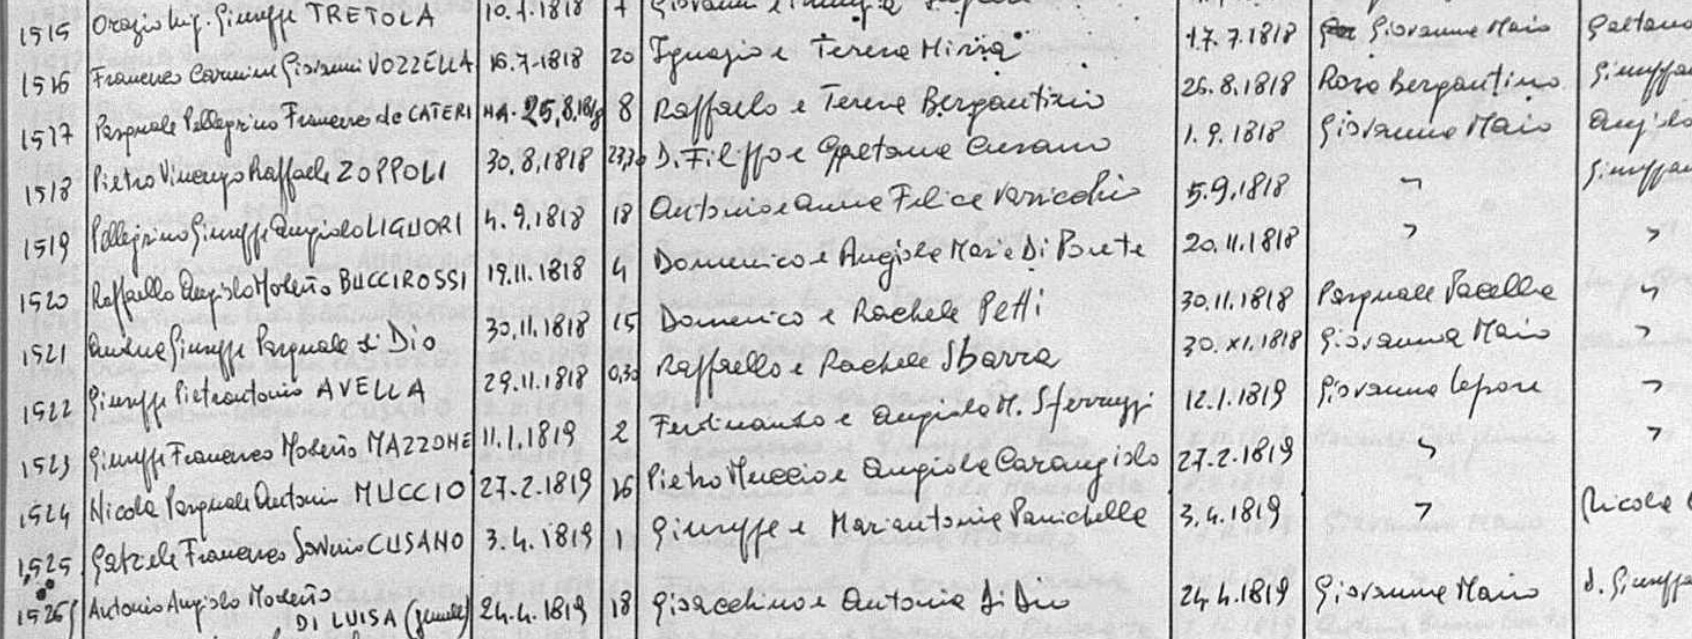 1515 Orazio Luig. Giuseppe TRETOLA 10.7.1818 7 Giovanni e 17.7.1818 Giovanna Maio Gaetano
1516 Francesco Carmine Giovanni VOZZELLA 16.7.1818 20 Ignazio e Teresa Mirra 26.8.1818 Rosa Bergantino
1517 Pasquale Pellegrino Francesco de CATERINA. 25.8.1818 8 Raffaello e Teresa Bergantino 1.9.1818 Giovanna Maio Angiolo
1518 Pietro Vincenzo Raffaele ZOPPOLI 30.8.1818 23,30 D. Filippo e Gaetana Cusano 5.9.1818 "
1519 Pellegrino Giuseppe Angiolo LIGUORI 4.9.1818 18 Antonio e Anna Felice Varricchio 20.11.1818 " "
1520 Raffaello Angiolo Modesto BUCCIROSSI 19.11.1818 4 Domenico e Angiola Maria Di Prete 30.11.1818 Pasquale Pacella "
1521 Andrea Giuseppe Pasquale di DIO 30.11.1818 15 Domenico e Rachele Petti 30.XI.1818 Giovanna Maio "
1522 Giuseppe Pietrantonio AVELLA 29.11.1818 0,30 Raffaello e Rachele Sbarra 12.1.1819 Giovanna Lepore "
1523 Giuseppe Francesco Modesto MAZZONE 11.1.1819 2 Ferdinando e Angiola M. Sferruzzi 27.2.1819 " "
1524 Nicola Pasquale Antonio MUCCIO 27.2.1819 16 Pietro Muccio e Angiola Carangiolo 3.4.1819 " Nicola
1525 Gabriele Francesco Saverio CUSANO 3.4.1819 1 Giuseppe e Mariantonia Panichella
1526 Antonio Angiolo Modesto DI LUISA (gemello) 24.4.1819 18 Gioacchino e Antonia di Dio 24.4.1819 Giovanna Maio d. Giuseppe